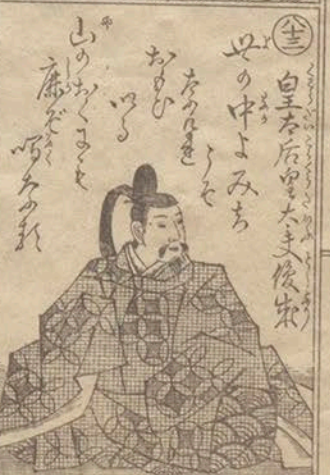 八十三
皇太后皇大夫俊成
世の中よみち
こそ
なけれ
おもひ
いる
山のおくにも
鹿ぞ
啼なる